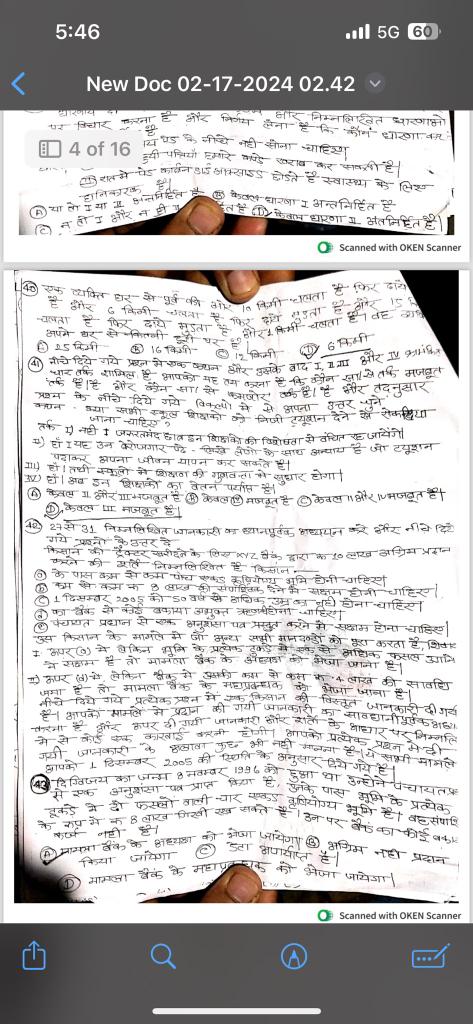 5:46
5G 60
New Doc 02-17-2024 02.42
पर विचार करना है और निर्णय लेना है कि कौन धारणा
4 of 16
पेड़ के नीचे नहीं सोना चाहिए।
पत्तियां हमारे कपड़े खराब कर सकती है।
हानिकारक है।
Ⓐ या तो I या II अन्तर्निहित है Ⓑ केवल धारणा I अन्तर्निहित है
Ⓒ न तो I और न ही II है Ⓓ केवल धारणा II अंतर्निहित है
Scanned with OKEN Scanner
40 एक व्यक्ति घर से पूर्व की ओर किमी चलता है फिर दायें
है और 6 किमी चलता है फिर दायें मुड़ता है और 15
चलता है फिर दायें मुड़ता है और 1 किमी चलता है। वह
अपने घर से कितनी दूरी पर है
15 किमी Ⓑ 16 किमी Ⓒ 12 किमी Ⓓ 6 किमी
41 नीचे दिये गये प्रश्न में एक कथन और उसके बाद I, II, III और IV क्रमांकित
चार तर्क शामिल हैं, आपको यह तय करना है कि कौन सा/से तर्क मजबूत
तर्क है/हैं और कौन सा/से कमजोर तर्क है/हैं और तदनुसार
प्रश्न के नीचे दिये गये विकल्पों में से अपना उत्तर चुनें
कथन - क्या सभी स्कूल शिक्षकों को निजी ट्यूशन देने से रोक दिया
जाना चाहिए?
तर्क I) नहीं। जरूरतमंद छात्र इन शिक्षकों की विशेषता से वंचित रह जायेंगे।
II) हां। यह उन बेरोजगार पढ़े-लिखे लोगों के साथ अन्याय है जो ट्यूशन
पढ़ाकर अपना जीवन यापन कर सकते हैं।
III) हां। तभी स्कूलों में शिक्षण की गुणवत्ता में सुधार होगा।
IV) हां। अब इन शिक्षकों का वेतन पर्याप्त है।
Ⓐ केवल II और III मजबूत है Ⓑ केवल मजबूत है Ⓒ केवल II और IV मजबूत है।
Ⓓ केवल III मजबूत है।
42 29 से 31 निम्नलिखित जानकारी का ध्यानपूर्वक अध्ययन करें और नीचे दिये
गये प्रश्नों के उत्तर दें
किसान को ट्रैक्टर खरीदने के लिए XYZ बैंक द्वारा रू 10 लाख अग्रिम प्रदान
करने की शर्तें निम्नलिखित हैं किसान-
के पास कम से कम पांच एकड़ कृषियोग्य भूमि होनी चाहिए।
कम से कम रू 8 लाख की देने में सक्षम होनी चाहिए।
1 दिसम्बर 2005 को 50 वर्ष से अधिक उम्र का नहीं होना चाहिए।
का बैंक से कोई बकाया ऋण नहीं होना चाहिए।
पंचायत प्रधान से एक अनुशंसा पत्र प्रस्तुत करने में सक्षम होना चाहिए।
उस किसान के मामले में जो अन्य सभी मानदण्डों को पूरा करता है,
I. ऊपर (a) में लेकिन भूमि के प्रत्येक टुकड़े में एक से अधिक फसल उगाने
में सक्षम है तो मामला बैंक के अध्यक्ष को भेजा जाता है।
II) ऊपर में लेकिन बैंक में उसकी कम से कम रू 4 लाख की सावधि
जमा है तो मामला बैंक के महाप्रबन्धक को भेजा जाता है।
नीचे दिये गये प्रत्येक प्रश्न में एक किसान की विस्तृत जानकारी दी गई
है। आपको मामले में प्रदान की गयी जानकारी का सावधानीपूर्वक
करना है और ऊपर दी गयी जानकारी और शर्तों के आधार पर निम्नलि
में से कोई एक कारवाई करनी होगी। आपको प्रत्येक प्रश्न में दी
गयी जानकारी के अलावा कुछ भी नहीं मानना है। ये सभी मामले
आपको 1 दिसम्बर 2005 की स्थिति के अनुसार दिये गये हैं।
43 दिग्विजय का जन्म 8 नवम्बर 1996 को हुआ था उन्होंने पंचायत प्र
से एक अनुशंसा पत्र प्राप्त किया है, उनके पास भूमि के प्रत्येक
टुकड़े में दो फसलों वाली चार एकड़ कृषियोग्य भूमि है। वह
के रूप में रू 8 लाख गिरवी रख सकते हैं। उन पर बैंक का कोई
कर्ज नहीं है।
Ⓐ मामला बैंक के अध्यक्ष को भेजा जायेगा। Ⓑ अग्रिम नहीं प्रदान
किया जायेगा Ⓒ डेटा अपर्याप्त है।
Ⓓ मामला बैंक के महाप्रबन्धक को भेजा जायेगा।
Scanned with OKEN Scanner